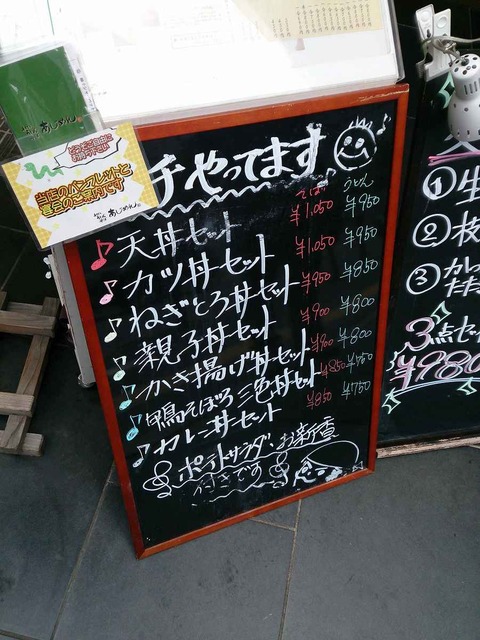 チやってます
そば うどん
天丼セット ¥1,050 ¥950
カツ丼セット ¥1,050 ¥950
ねぎとろ丼セット ¥950 ¥850
親子丼セット ¥900 ¥800
かき揚げ丼セット ¥900 ¥800
鴨そぼろ三色丼セット ¥850 ¥750
カレー丼セット ¥850 ¥750
ポテトサラダ、お新香
付きです
当店のパンフレットと
宴会のご案内です
あじめん
① 生
② 枝
③ かつ
たたき
3点セッ
¥980